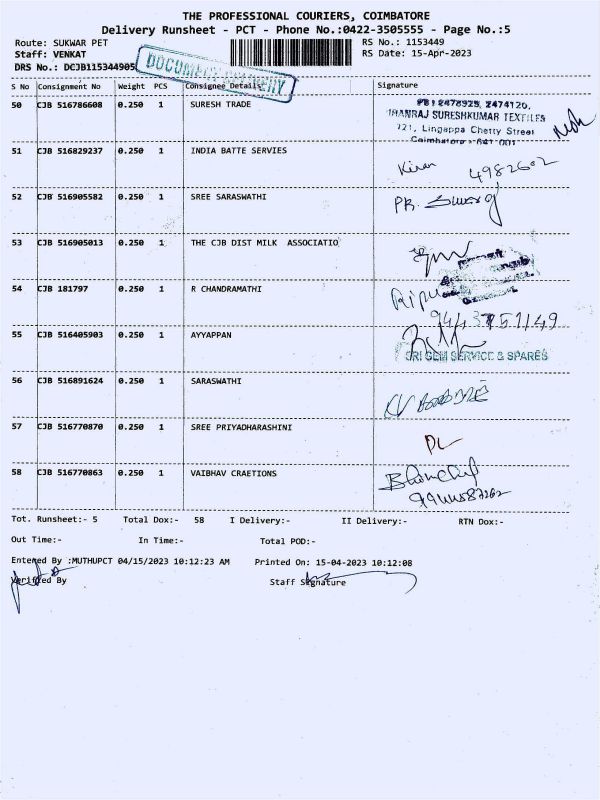 THE PROFESSIONAL COURIERS, COIMBATORE
Delivery Runsheet - PCT - Phone No.:0422-3505555 - Page No.:5
Route: SUKWAR PET RS No.: 1153449
Staff: VENKAT RS Date: 15-Apr-2023
DRS No.: DCJB115344905 DOCUMENT DELIVERY
S No Consignment No Weight PCS Consignee Details Signature
50 CJB 516786608 0.250 1 SURESH TRADE
PB: 2478925, 2474120,
DHANRAJ SURESHKUMAR TEXTILES
721, Lingappa Chetty Street
Coimbatore - 641 001
51 CJB 516829237 0.250 1 INDIA BATTE SERVIES Kiran 4982602
52 CJB 516905582 0.250 1 SREE SARASWATHI PR.
53 CJB 516905013 0.250 1 THE CJB DIST MILK ASSOCIATIO
54 CJB 181797 0.250 1 R CHANDRAMATHI
55 CJB 516405903 0.250 1 AYYAPPAN
SRI GEM SERVICE & SPARES
56 CJB 516891624 0.250 1 SARASWATHI
57 CJB 516770870 0.250 1 SREE PRIYADHARASHINI
58 CJB 516770863 0.250 1 VAIBHAV CRAETIONS
Tot. Runsheet:- 5 Total Dox:- 58 I Delivery:- II Delivery:- RTN Dox:-
Out Time:- In Time:- Total POD:-
Entered By :MUTHUPCT 04/15/2023 10:12:23 AM Printed On: 15-04-2023 10:12:08
Verified By Staff Signature